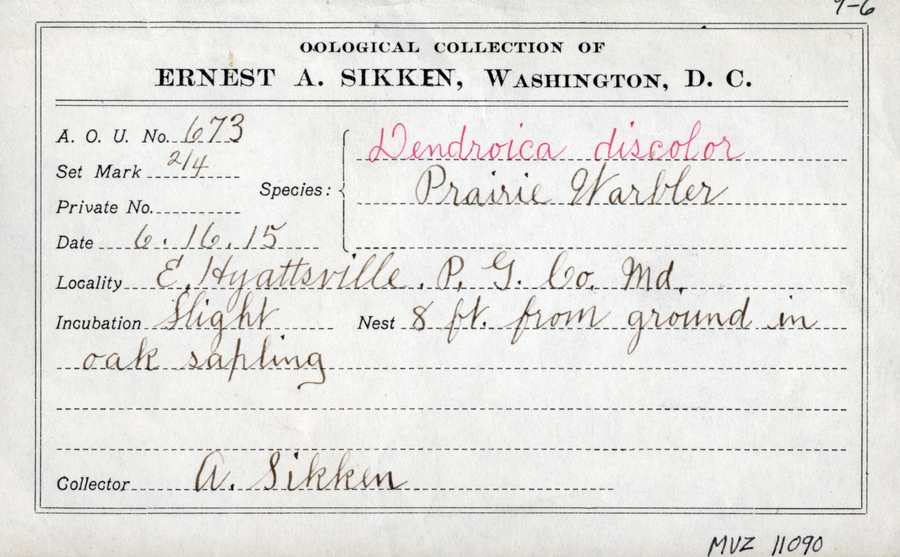 9-6
OOLOGICAL COLLECTION OF
ERNEST A. SIKKEN, WASHINGTON, D. C.
A. O. U. No. 673
Set Mark 2/4
Private No.
Date 6.16.15
Species: Dendroica discolor
Prairie Warbler
Locality E. Hyattsville, P. G. Co. Md.
Incubation Slight Nest 8 ft. from ground in
oak sapling
Collector A. Sikken
MVZ 11090